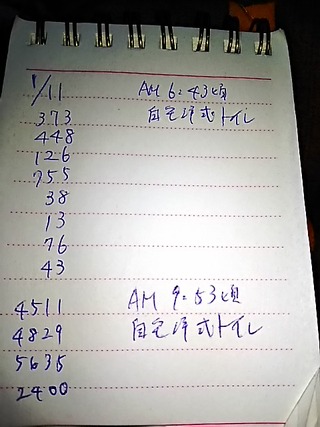 1/11 AM 6:43頃
373 自宅洋式トイレ
448
126
755
38
13
76
43
4511 AM 9:53頃
4829 自宅洋式トイレ
5635
2400